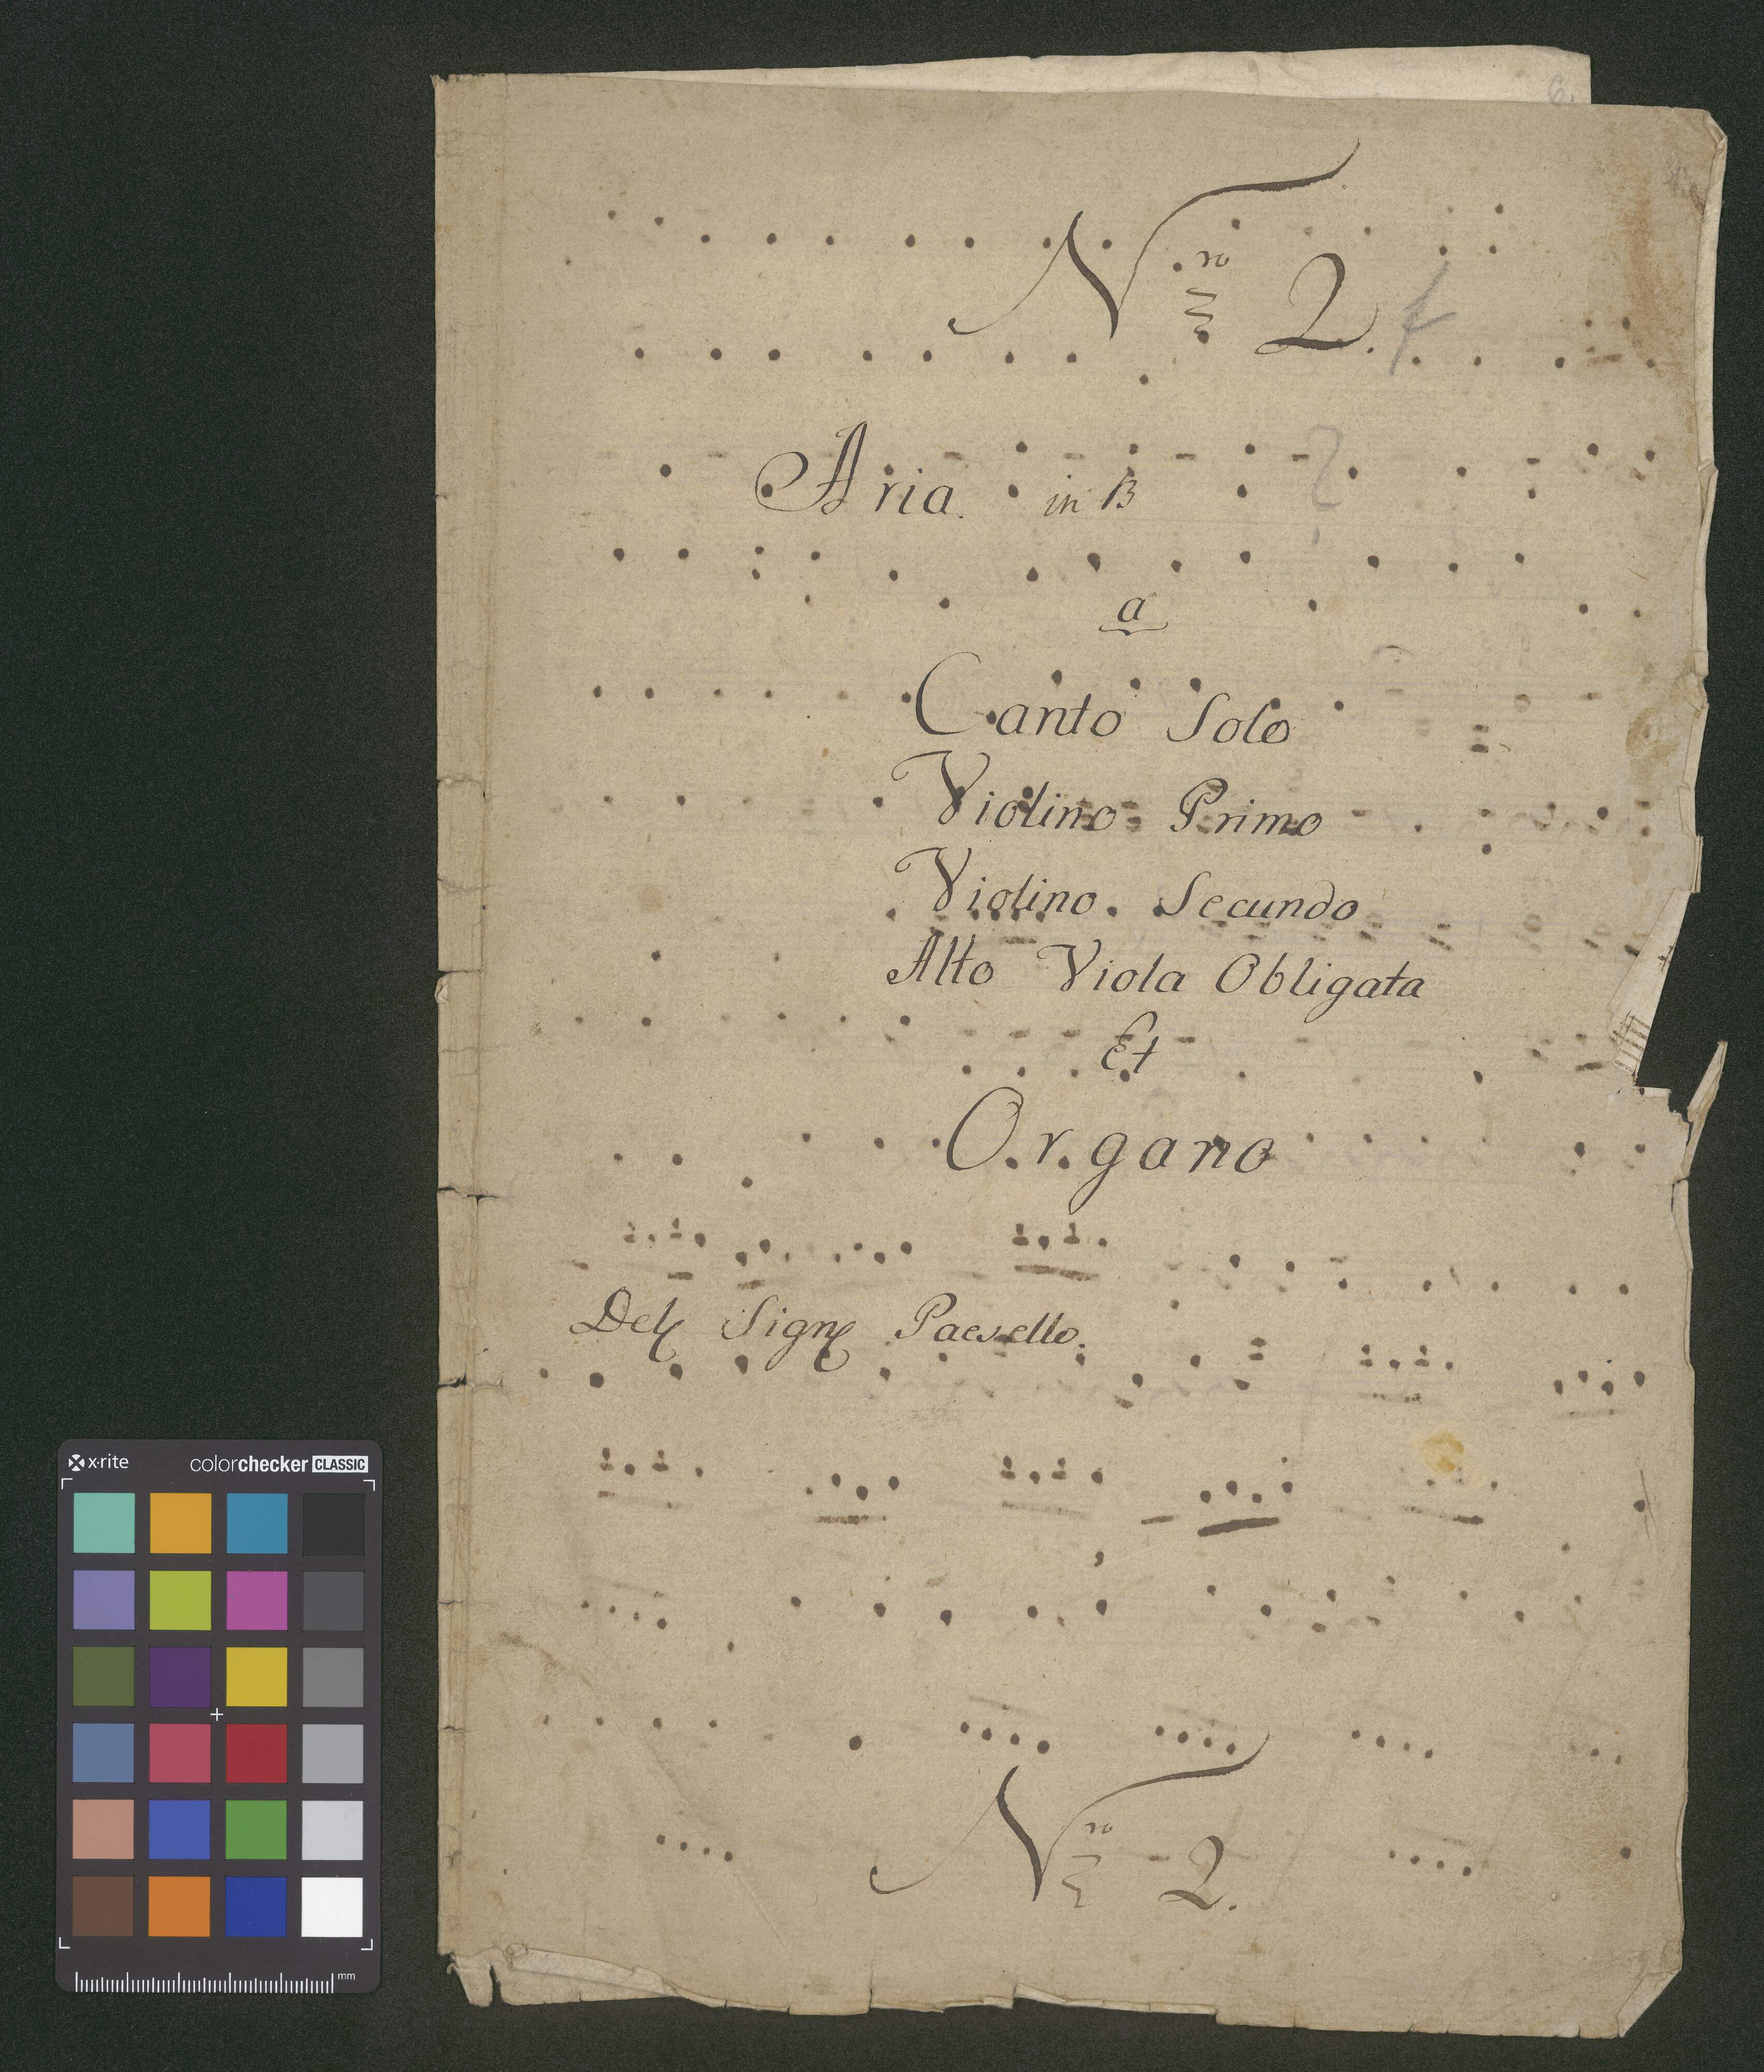 6.
Nro 2.
Aria. in B
a
Canto Solo
Violino Primo
Violino Secundo
Alto Viola Obligata
Et
Organo
Del Sign Paesello.
Nro 2.
x-rite colorchecker CLASSIC
mm